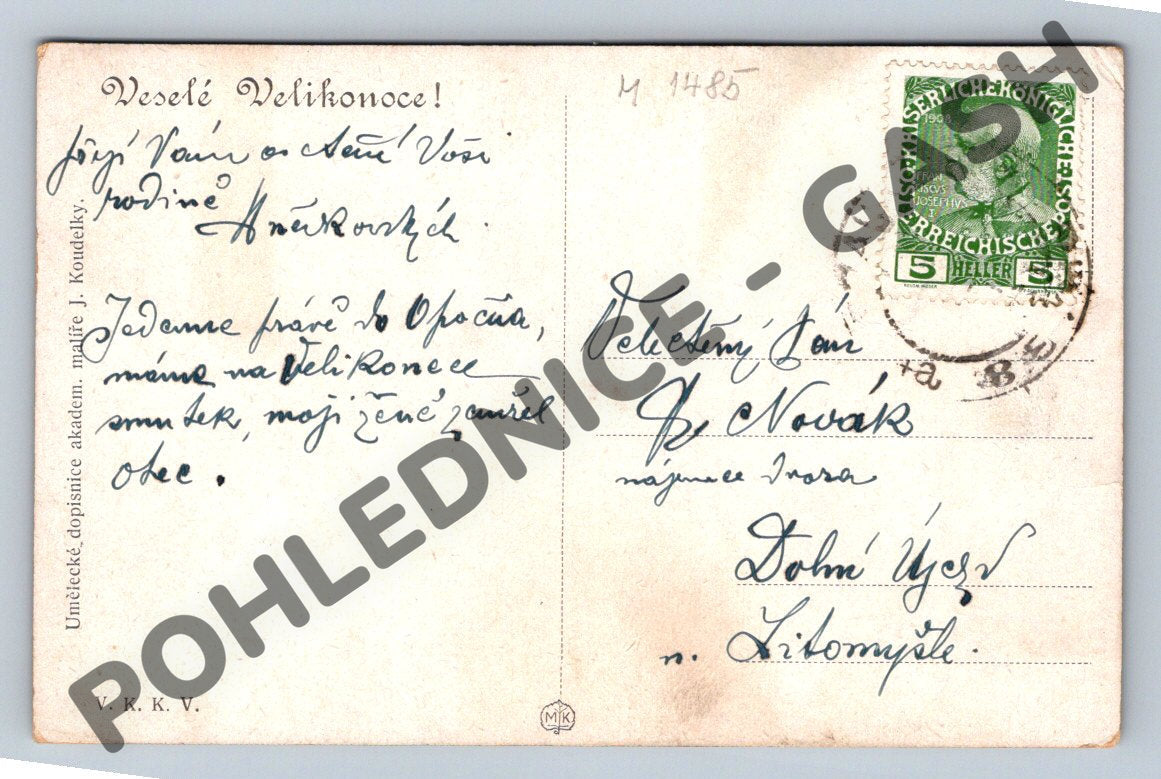 Veselé Velikonoce!
M 1485
Vám a
rodině
Jedeme právě do Opočna,
máme na Velikonoce
smutek, mojí ženě zemřel
otec.
Umělecké dopisnice akadem. malíře J. Koudelky.
V. K. K. V.
MK
KAISERLICHE KÖNIGLICHE
1908
IOSEPHVS
I
ÖSTERREICHISCHE
5 HELLER 5
Velectěný Pán
Novák
nájemce dvora
Dolní Újezd
n. Litomyšle.
POHLEDNICE - GASH